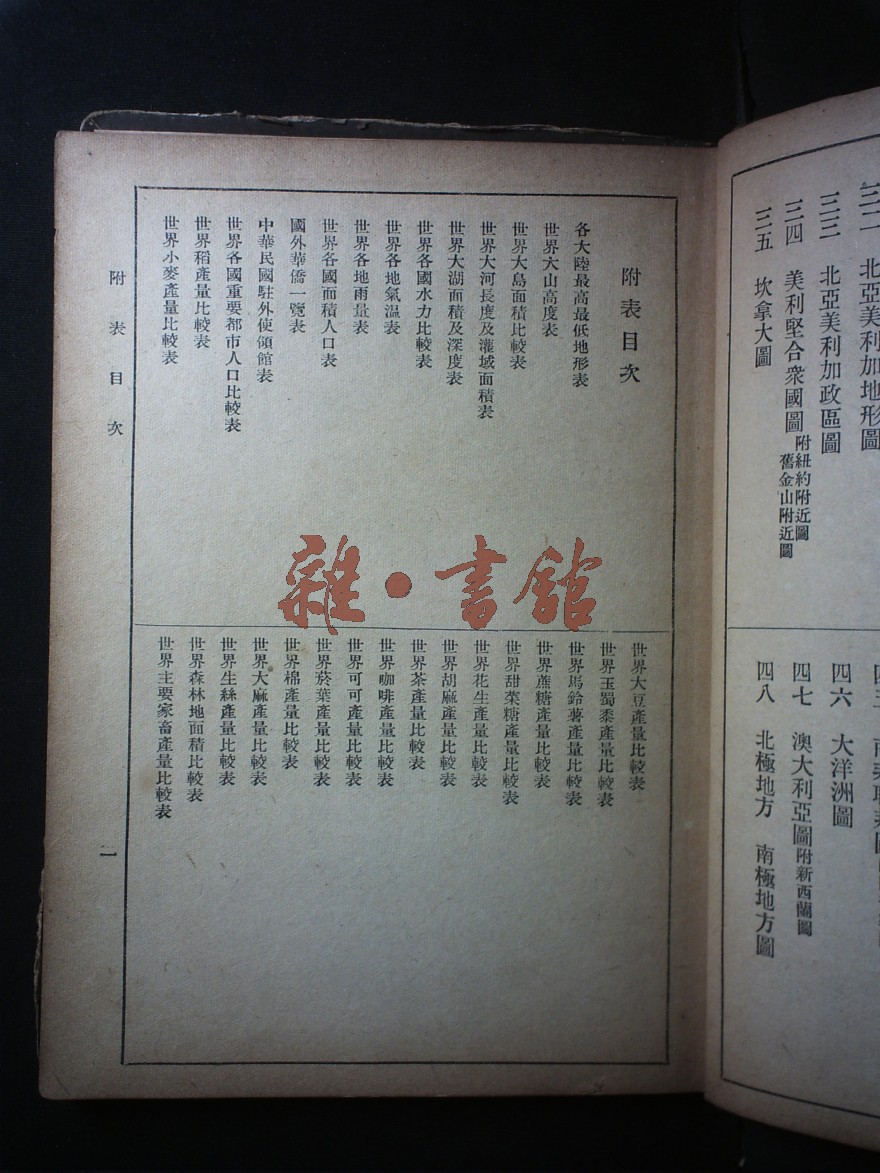 三二 北亞美利加地形圖
三三 北亞美利加政區圖
三四 美利堅合衆國圖 附紐約附近圖 舊金山附近圖
三五 坎拿大圖
四六 大洋洲圖
四七 澳大利亞圖 附新西蘭圖
四八 北極地方 南極地方圖
附表目次
各大陸最高最低地形表
世界大山高度表
世界大島面積比較表
世界大河長度及灌域面積表
世界大湖面積及深度表
世界各國水力比較表
世界各地氣溫表
世界各地雨量表
世界各國面積人口表
國外華僑一覽表
中華民國駐外使領館表
世界各國重要都市人口比較表
世界稻產量比較表
世界小麥產量比較表
世界大豆產量比較表
世界玉蜀黍產量比較表
世界馬鈴薯產量比較表
世界蔗糖產量比較表
世界甜菜糖產量比較表
世界花生產量比較表
世界胡麻產量比較表
世界茶產量比較表
世界咖啡產量比較表
世界可可產量比較表
世界菸葉產量比較表
世界棉產量比較表
世界大麻產量比較表
世界生絲產量比較表
世界森林地面積比較表
世界主要家畜產量比較表
附表目次
一
雜·書館